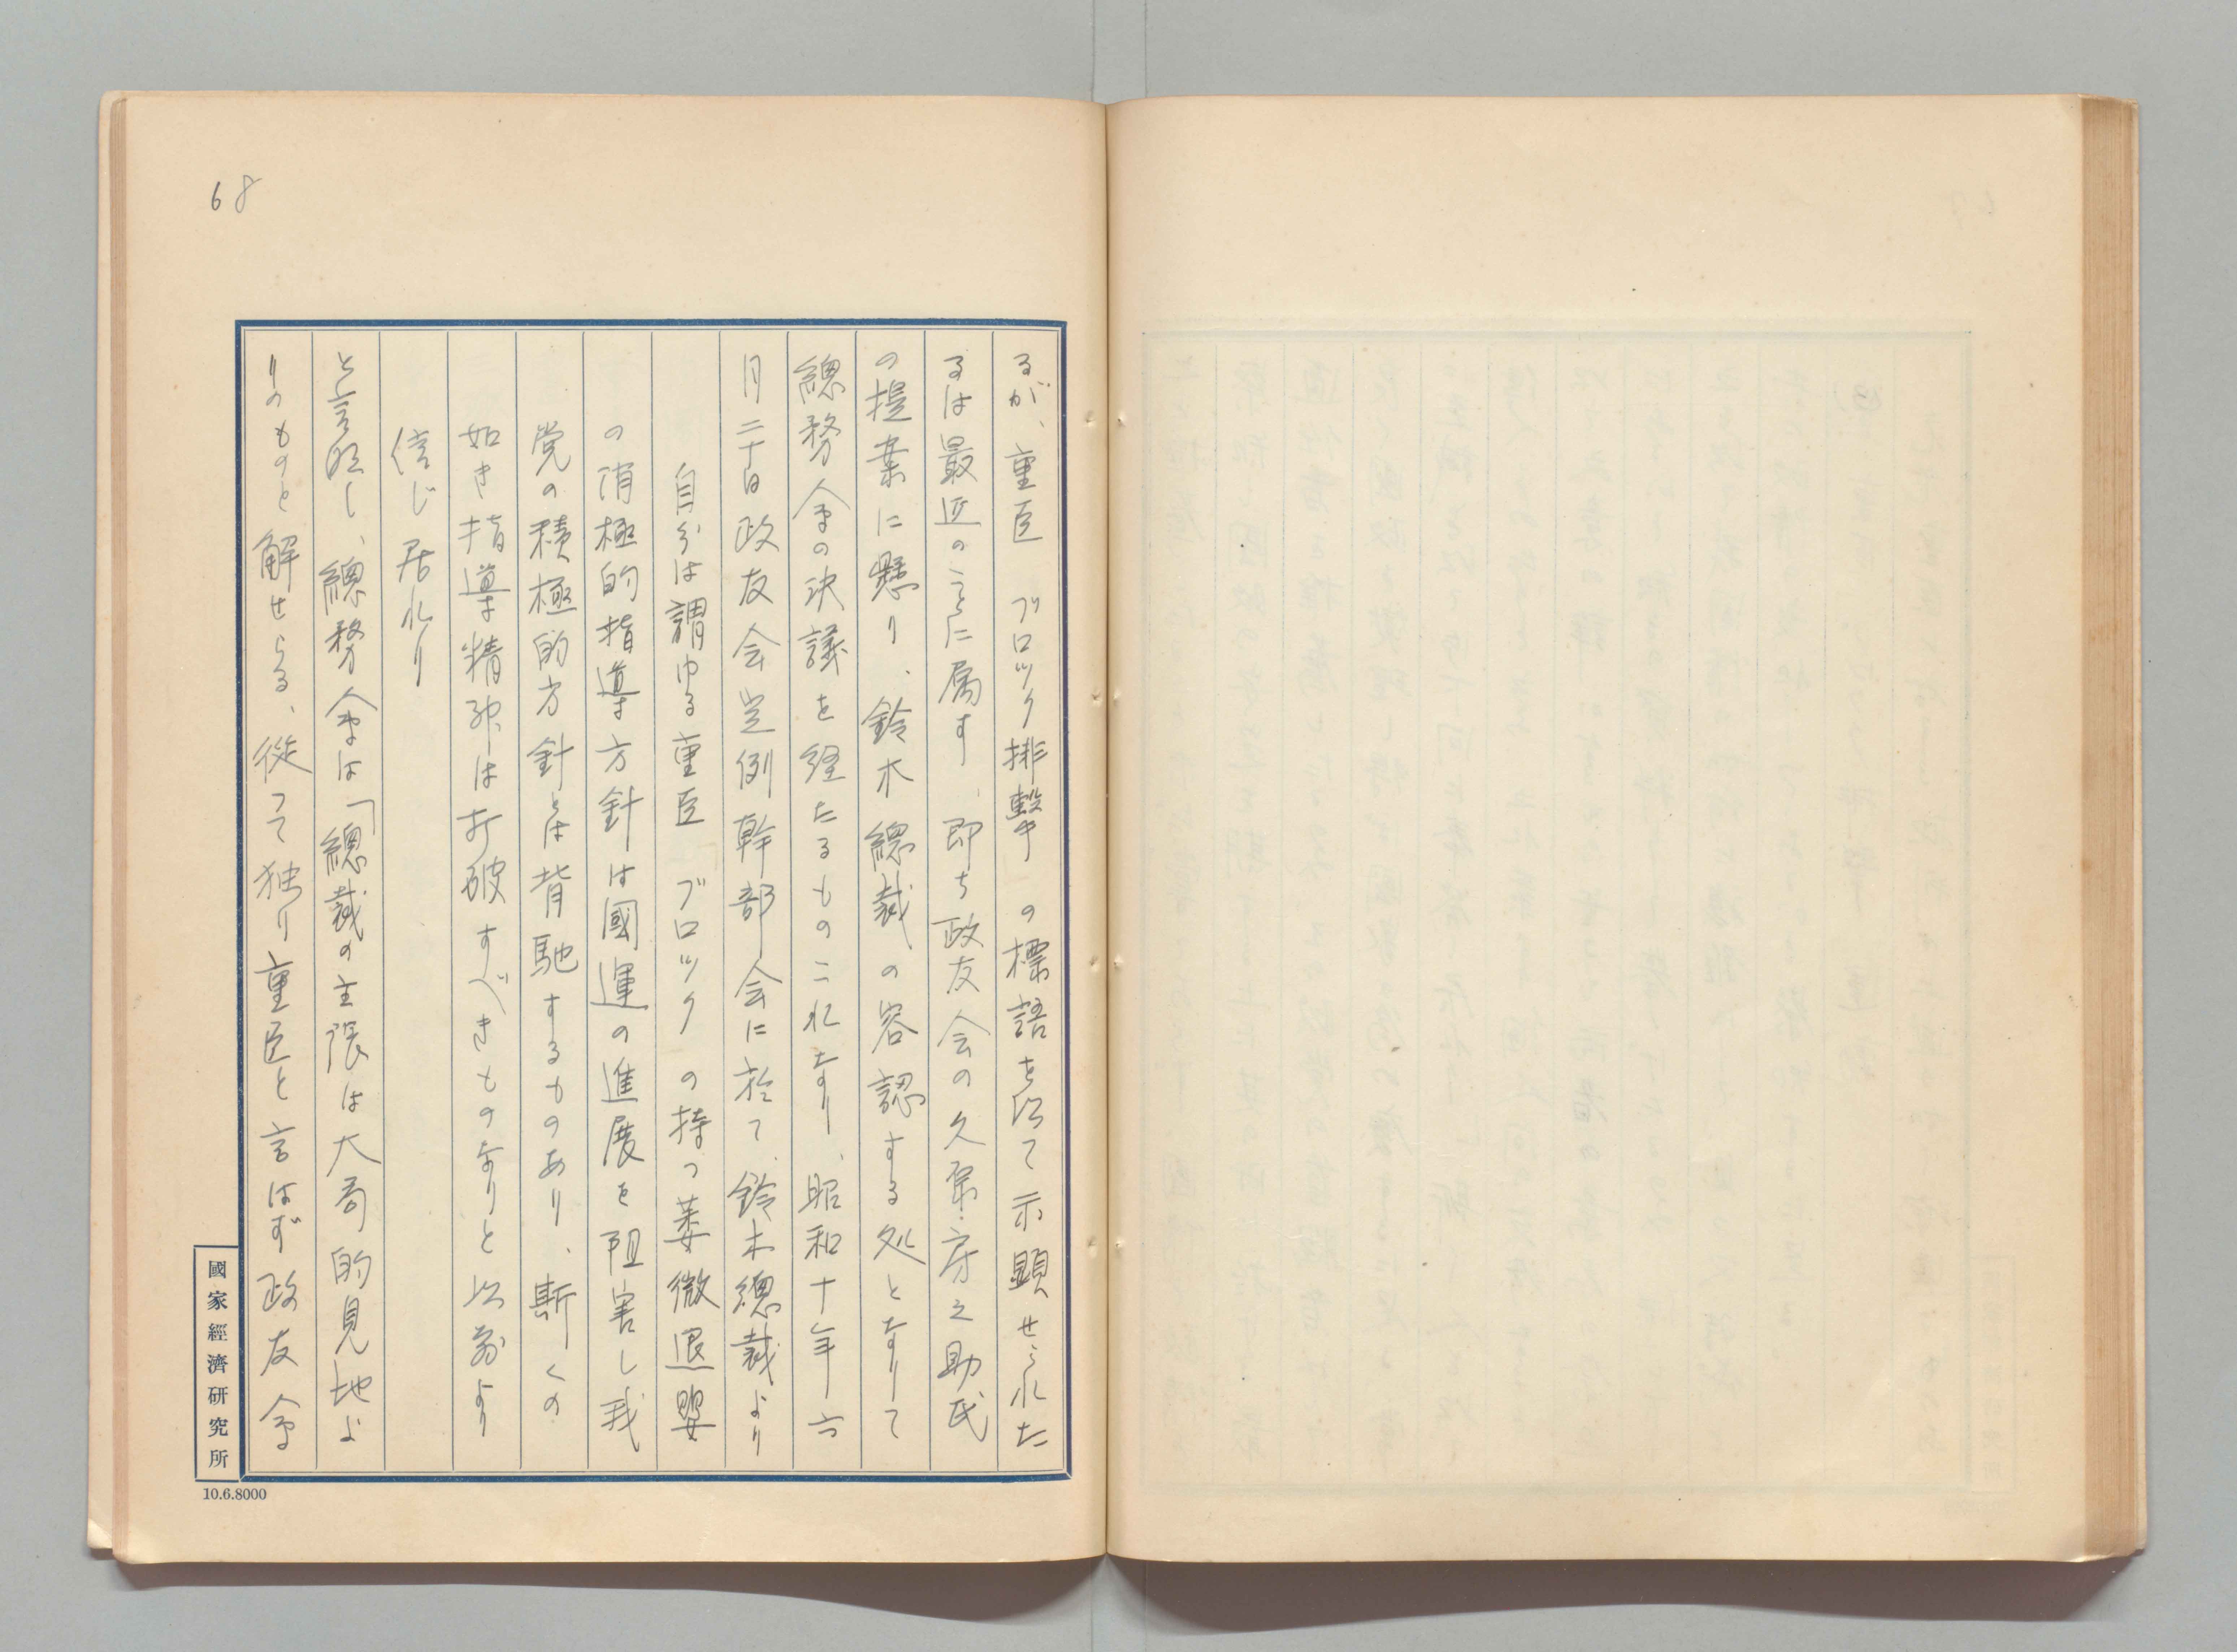 68
るが、重臣ブロツク排撃の標語を以て示顕せられた
るは最近のことに属す、即ち政友会の久原房之助氏
の提案に懸り、鈴木總裁の容認する処となりて
總務会の決議を経たるものこれなり、昭和十年六
月二十日政友会定例幹部会に於て、鈴木總裁より
自分は謂ゆる重臣ブロツクの持つ萎微退嬰
の消極的指導方針は國運の進展を阻害し我
党の積極的方針とは背馳するものあり、斯くの
如き指導精神は打破すべきものなりと以前より
信じ居れり
と言明し、總務会は「總裁の主張は大局的見地よ
りのものと解せらる、従つて独り重臣と言はず政友会
國家經濟研究所
10.6.8000